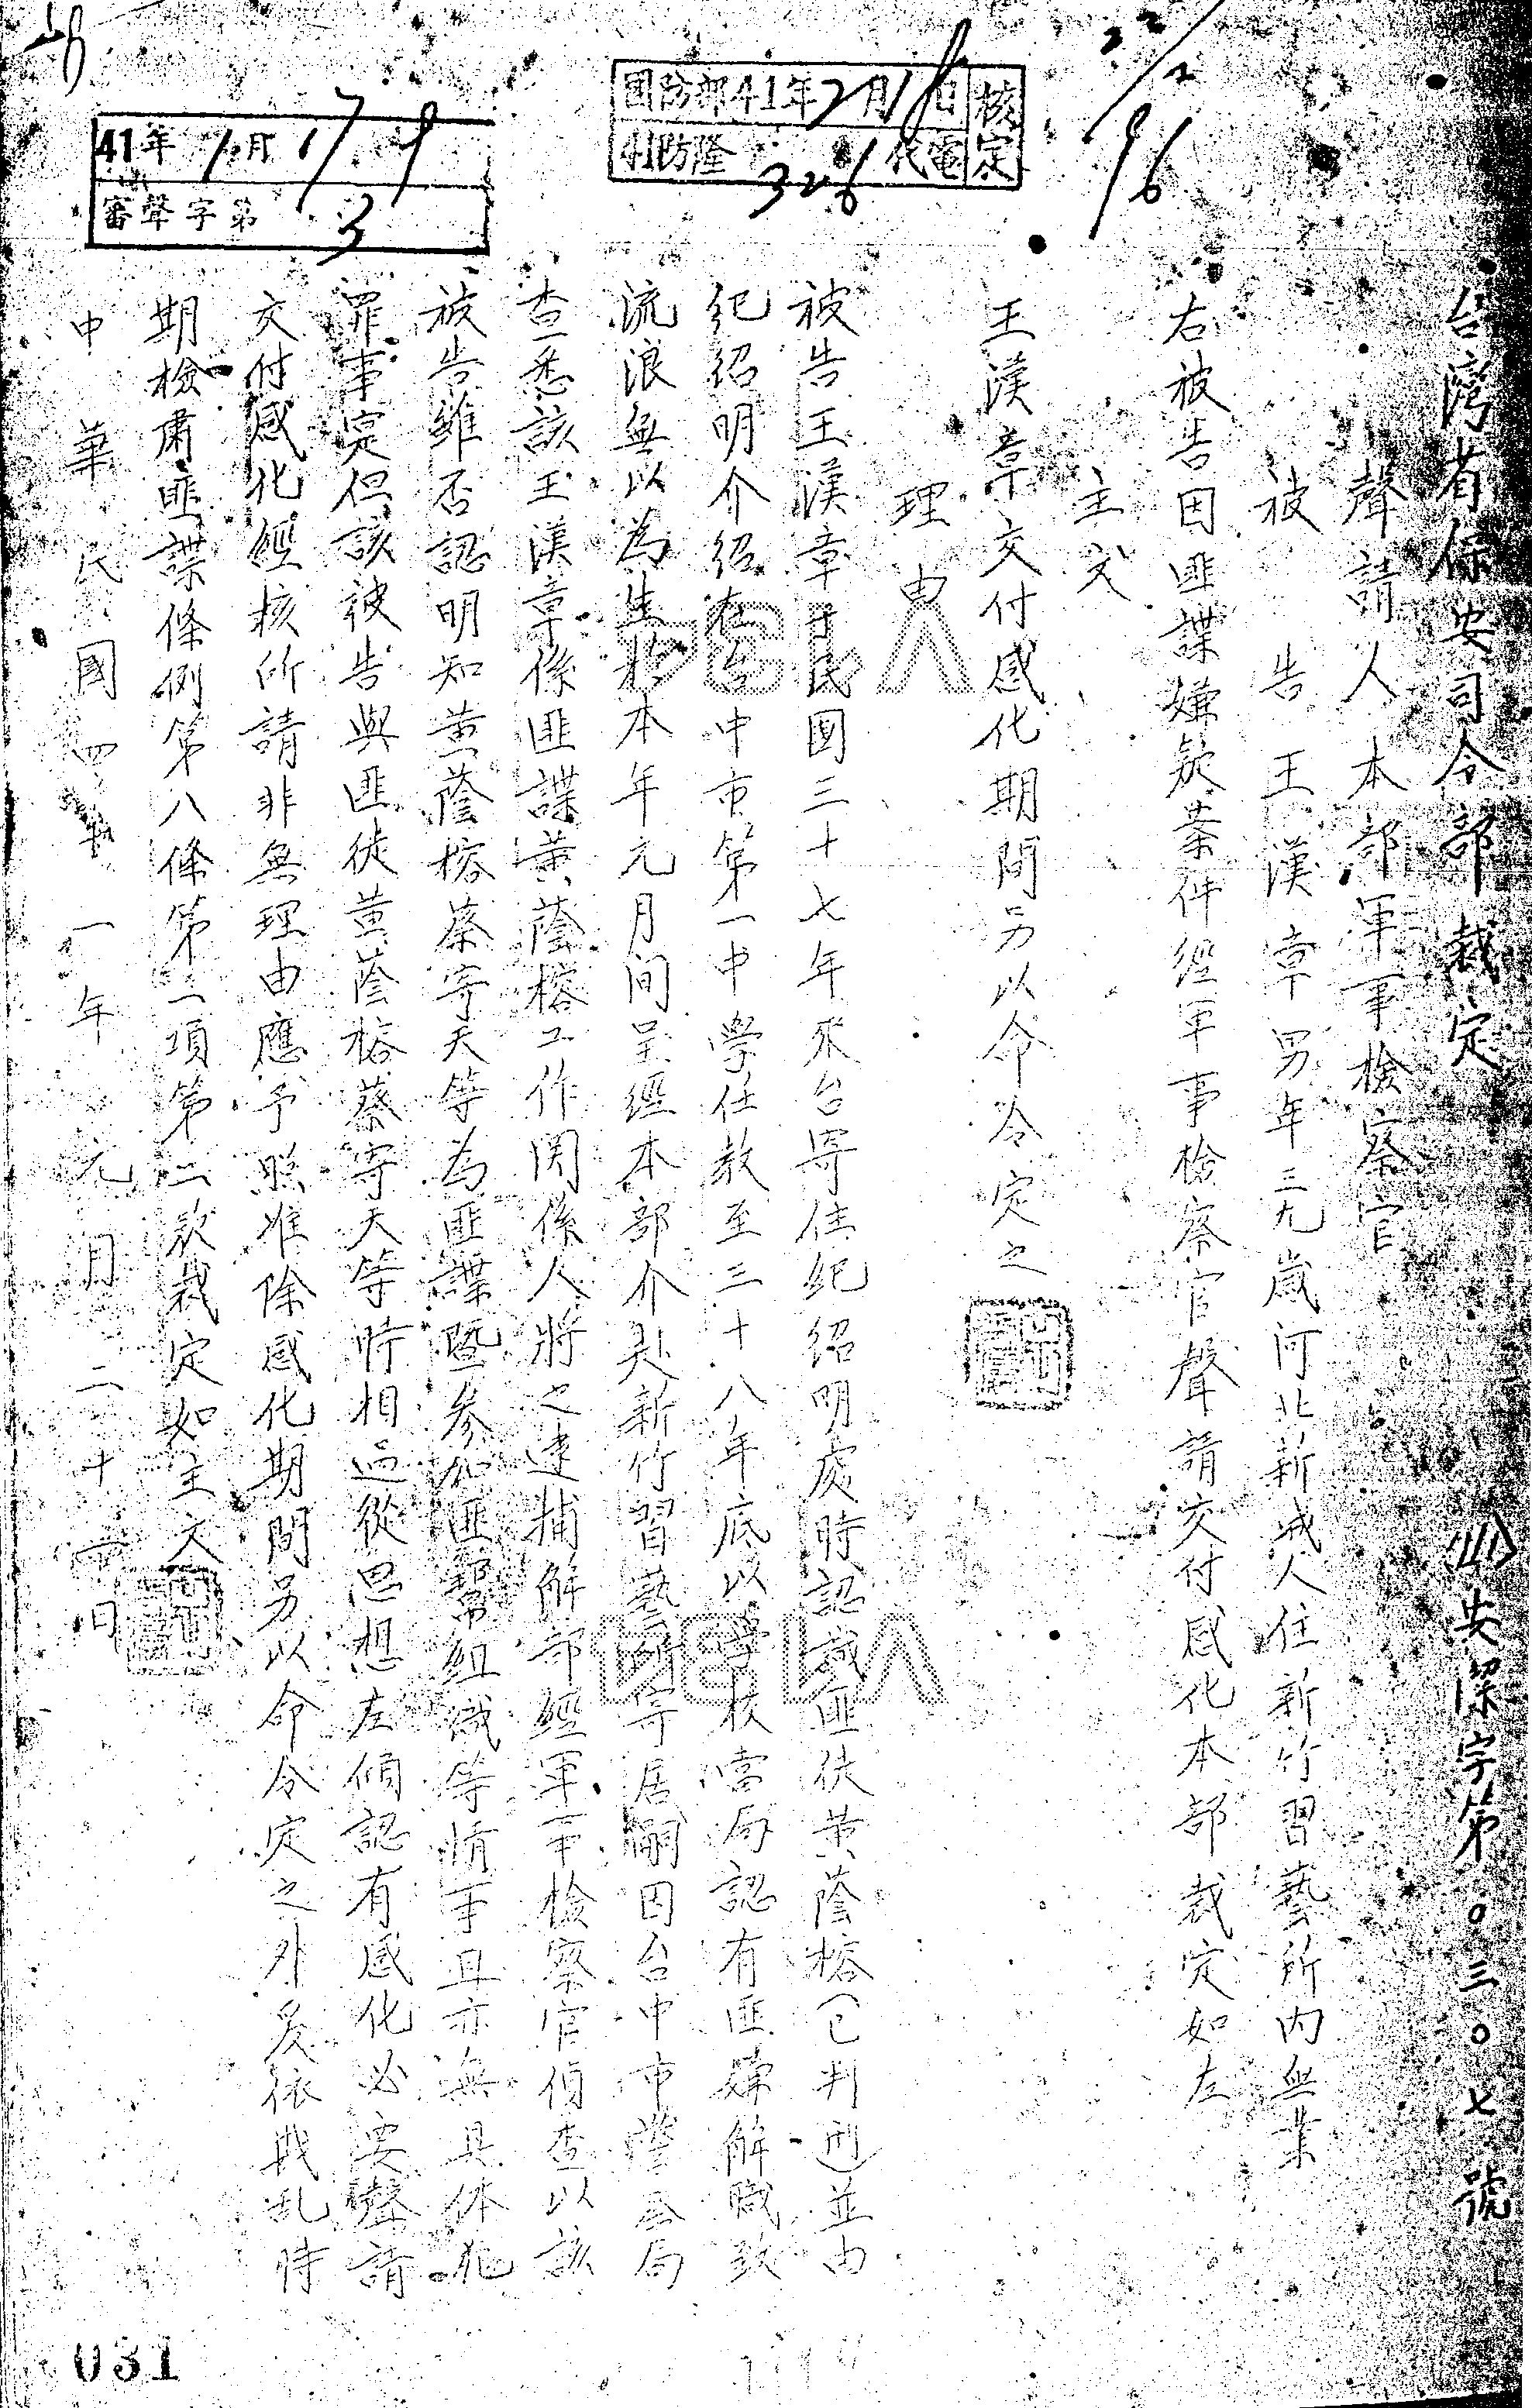 台灣省保安司令部裁定 安潔字第〇三〇七號
聲請人本部軍事檢察官
被告王漢章男年三九歲河北新城人住新竹習藝所內無業
右被告因匪諜嫌疑案件經軍事檢察官聲請交付感化本部裁定如左
主文
王漢章交付感化期間另以命令定之
理由
被告王漢章于民國三十七年來台寄住紀紹明處時認識匪徒黃蔭榕(已判刑)並由
紀紹明介紹在台中市第一中學任教至三十八年底以學校當局認有匪嫌解職致
流浪無以為生於本年元月间呈經本部介赴新竹習藝所寄居嗣因台中市警察局
查悉該王漢章係匪諜黃蔭榕工作関係人將之逮捕解部經軍事檢察官偵查以該
被告雖否認明知黃蔭榕蔡寄天等為匪諜暨参加匪幫組織等情事且亦無具体犯
罪事寔但該被告與匪徒黃蔭榕蔡寄天等時相過從思想左傾認有感化必要聲請
交付感化經核所請非無理由應予照准除感化期間另以命令定之外爰依戡乱時
期檢肅匪諜條例第八條第一項第二款裁定如主文
中華民國四十一年元月二十 日
國防部41年2月18日核定
41防隆326代電
41年1月17日
審聲字第3
22/2
96
031